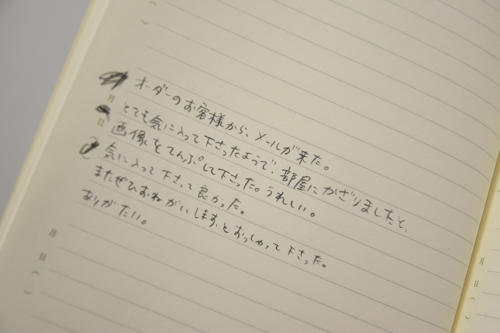 オーダーのお客様から、メールが来た。
とても気に入って下さったようで、部屋にかざりましたと、
画像をてんぷして下さった。うれしい。
気に入って下さって良かった。
またぜひおねがいしますとおっしゃって下さった。
ありがたい。
月
日
(
)
月
日
(